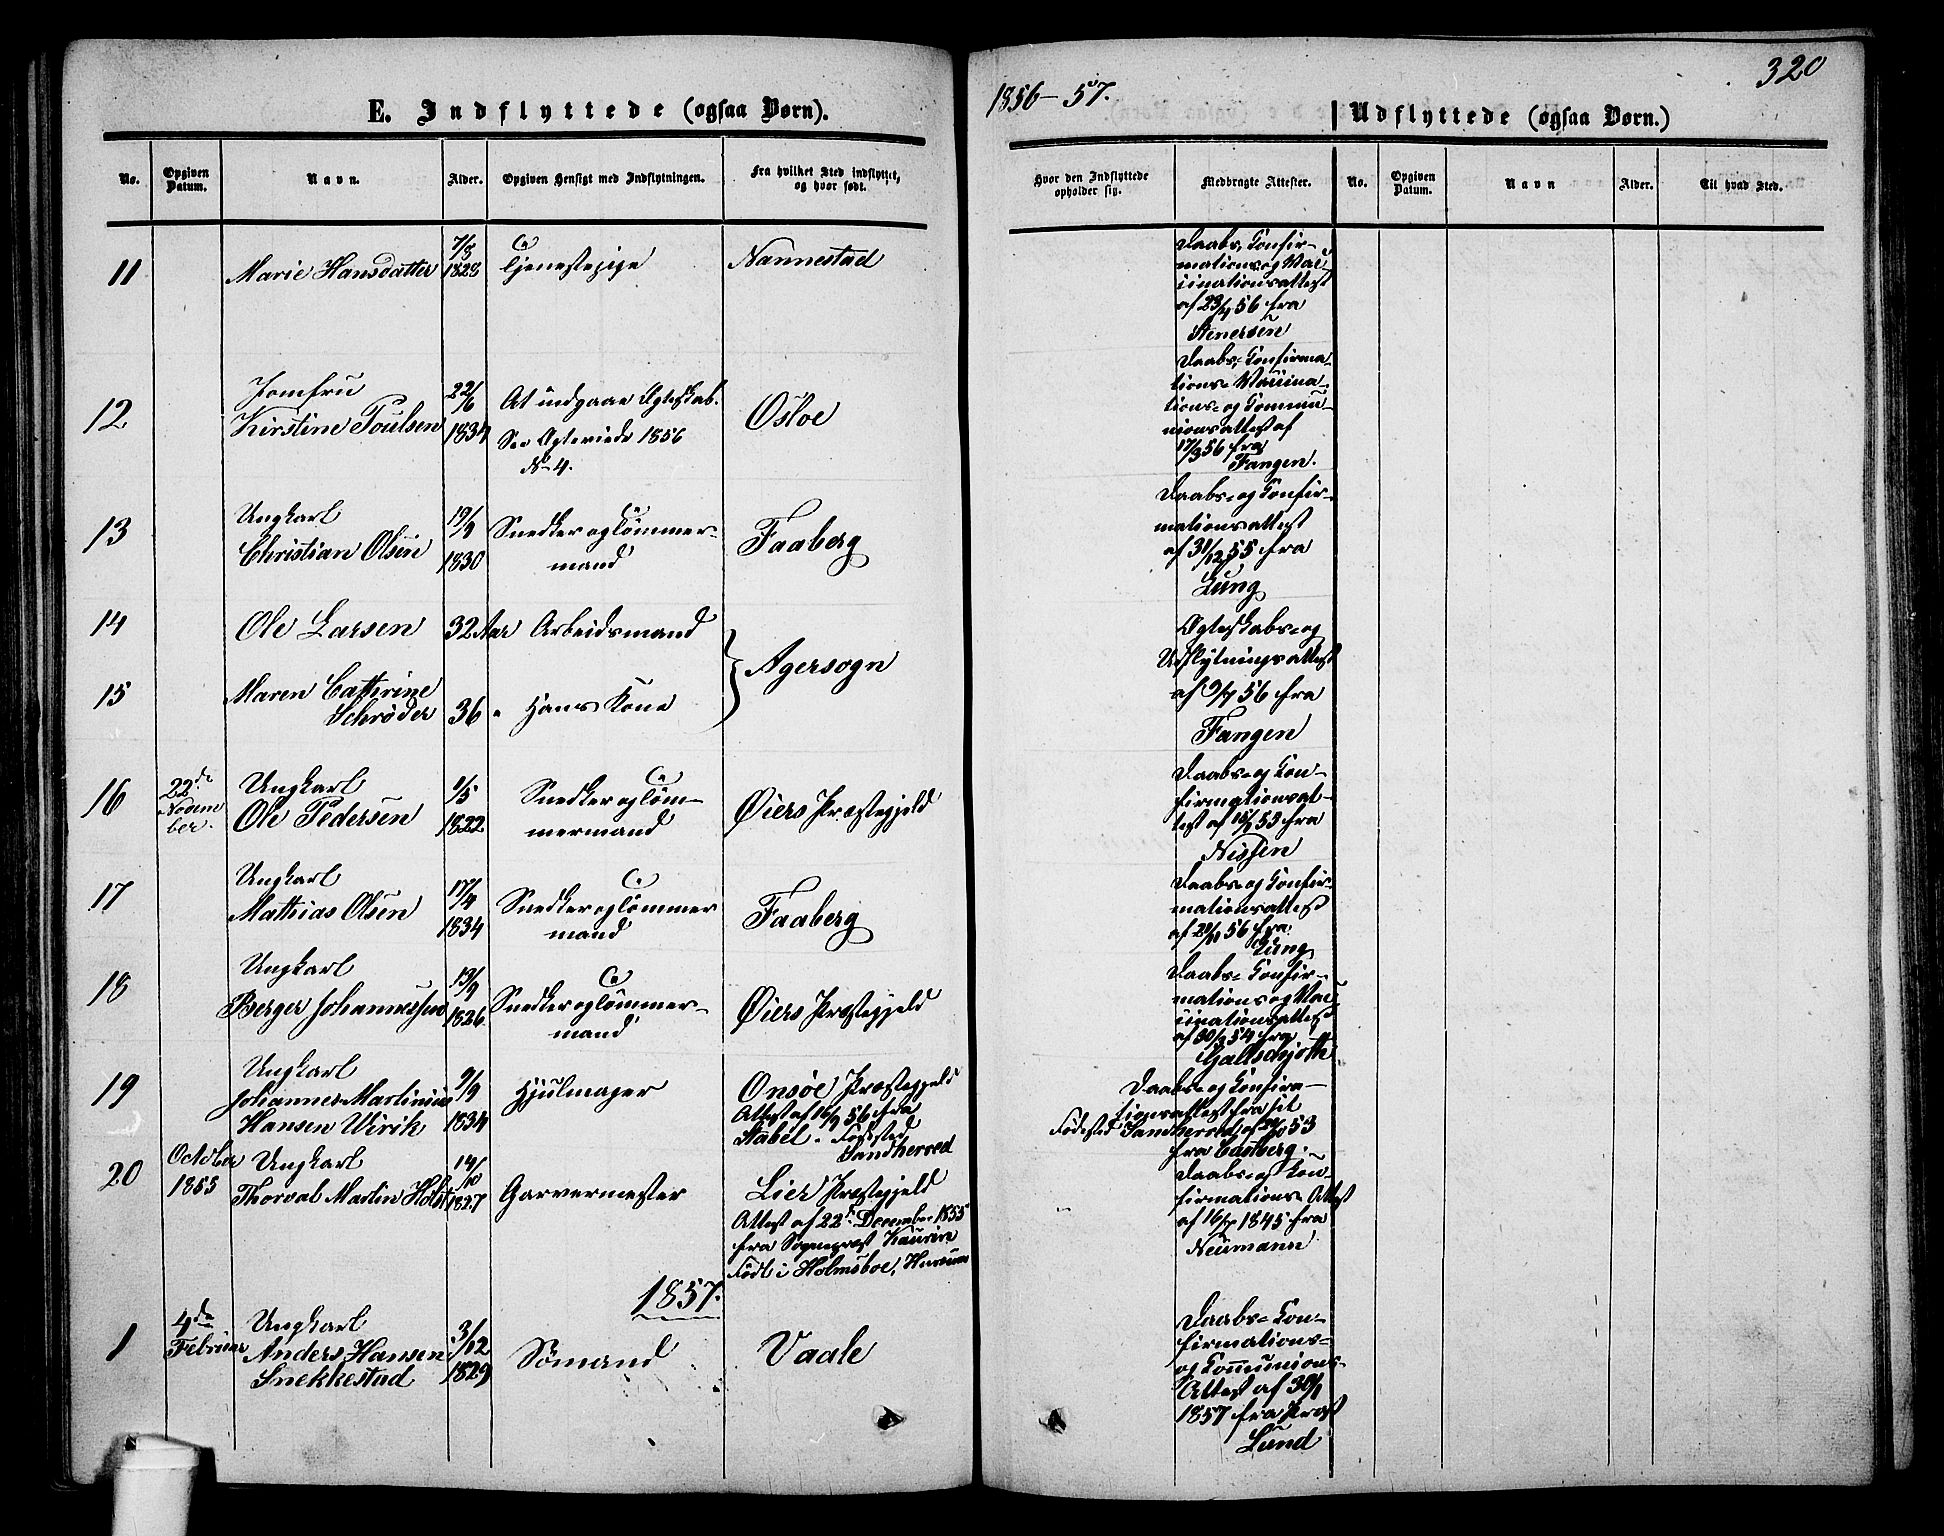 320
1856-57.
E. Indflyttede (ogsaa Børn).
Udflyttede (ogsaa Børn.)
No.
Opgiven Datum.
Navn.
Alder.
Opgiven Hensigt med Indflytningen.
Fra hvilket Sted indflyttet, og hvor født.
Hvor den Indflyttede opholder sig.
Medbragte Attester.
No.
Opgiven Datum.
Navn
Alder.
Til hvad Sted.
11
Marie Hansdatter
7/8
1828
Tjenestepige
Nannestad
Daabs, Confir-
mations og Vac-
cinationsattest
af 23/4 56 fra
Stenersen
12
Jomfru
Kirstine Poulsen
22/6
1834
At indgaae Egteskab.
See Egteviede 1856
No 4.
Osloe
Daabs, Confirma-
tions- Vaccina-
tions- og Commu-
nionsattest af
17/3 56 fra
Fangen.
13
Ungkarl
Christian Olsen
19/9
1830
Snedker og Tømmer-
mand
Faaberg
Daabs- og Confir-
mationsattest
af 31/12 55 fra
Lung
14
Ole Larsen
32 Aar
Arbeidsmand
Agersogn
Egteskabs- og
Udflytningsattest
af 9/7 56 fra
Fangen
15
Maren Cathrine
Schrøder
36 "
Hans Kone
16
22de
Novem
ber.
Ungkarl
Ole Pedersen
1/5
1822
Snedker og Tøm-
mermand
Øiers Præstegjeld
Daabs- og Con-
firmationsat-
test af 15/3 53 fra
Nissen
17
Ungkarl
Mathias Olsen
17/4
1834
Snedker og Tømmer
mand
Faaberg
Daabs- og Confir-
mationsattest
56 fra
Lung
18
Ungkarl
Berger Johannessen
13/9
1826
Snedker og Tømmer-
mand
Øiers Præstegjeld
Daabs- Confir-
mations og Vac
cinationsattest
54 fra
19
Ungkarl
Johannes Martinius
Hansen Wirik
9/9
1834
Hjulmager
Onsøe Præstegjeld
Attest af 16/9 56 fra
Stabel. Fødested
Sandherred
Daabs- og Confirma-
tionsattest fra sit
Fødested Sandherred af 53
fra Castberg.
20
October
1855
Ungkarl
Thorval Martin Holst
14/10
1827
Garvermester
Lier Præstegjeld
Attest af 22de December 1855
fra Sognepræst Kaurin
Født i Holmsboe, Hurum
Daabs- og Kon-
firmations- Attest
af 16/7 1845 fra
Neumann
1857.
1
4de
Februar
Ungkarl
Anders Hansen
Snekkestad
3/12
1829
Sømand
Vaale
Daabs- Con-
firmations-
og Communions-
Attest af 30/1
1857 fra Præst
Lund